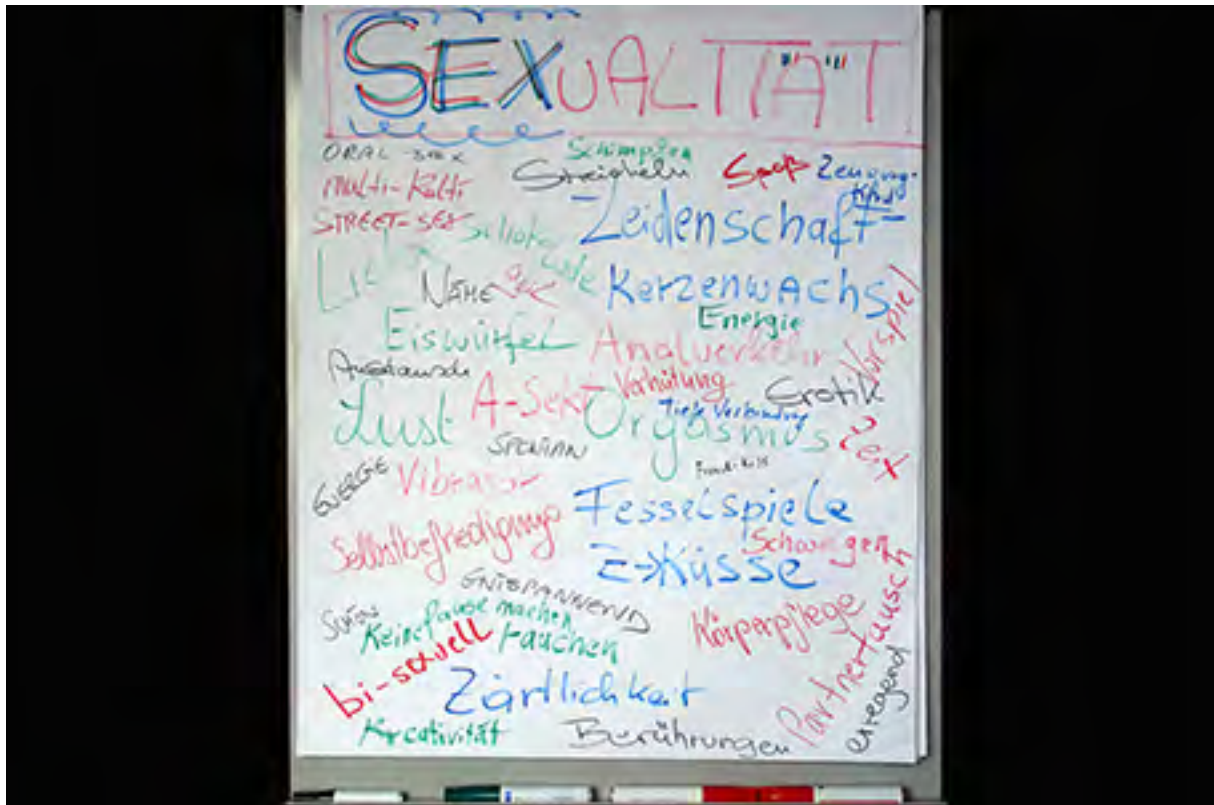 SEXUALITÄT
ORAL-SEX
Schimpfen
Streicheln
Spaß
Zeugung-
Kind
Multi-Kulti
STREET-SEX
Leidenschaft
NÄHE
Kerzenwachs
Energie
Eiswürfel
Analverkehr
Vorspiel
Austausch
A-Sekt
Verhütung
Erotik
Lust
Tiefe Verbindung
Orgasmus
Zeit
SPONTAN
ENERGIE
Vibrator
Fesselspiele
Selbstbefriedigung
Schwanger
Z->Küsse
ENTSPANNEND
Keine Pause machen
rauchen
Körperpflege
Partnertausch
bi-sexuell
Zärtlichkeit
erregend
Kreativität
Berührungen